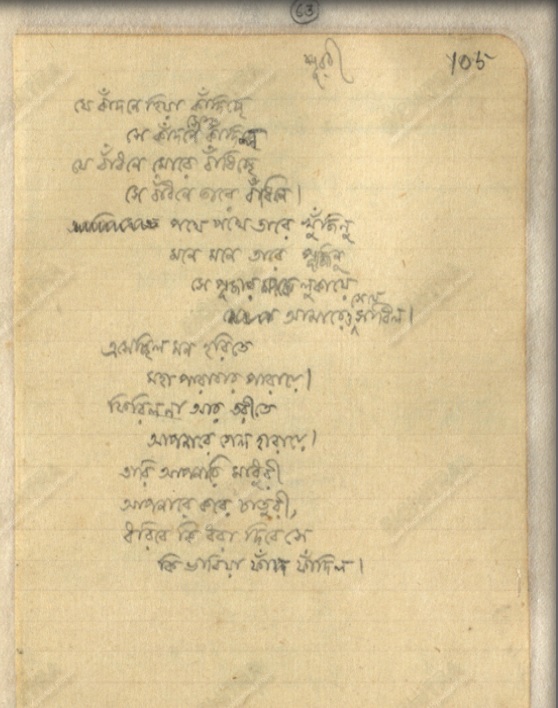 63
পূরবী 105
যে কাঁদনে হিয়া কাঁদিছে
সে কাঁদনে সেও কাঁদিল
যে বাঁধনে মোরে বাঁধিছে
সে বাঁধনে তারে বাঁধিল।
পথে পথে তারে খুঁজিনু
মনে মনে তারে পূজিনু
সে পূজার মাঝে লুকায়ে
আমারেও সে যে সাধিল।
এসেছিল মন হরিতে
মহা পারাবার পারায়ে।
ফিরিল না আর তরীতে
আপনারে গেল হারায়ে।
তারি আপনারি মাধুরী
আপনারে করে চাতুরী,
ধরিবে কি ধরা দিবে সে
কি ভাবিয়া ফাঁদ ফাঁদিল।